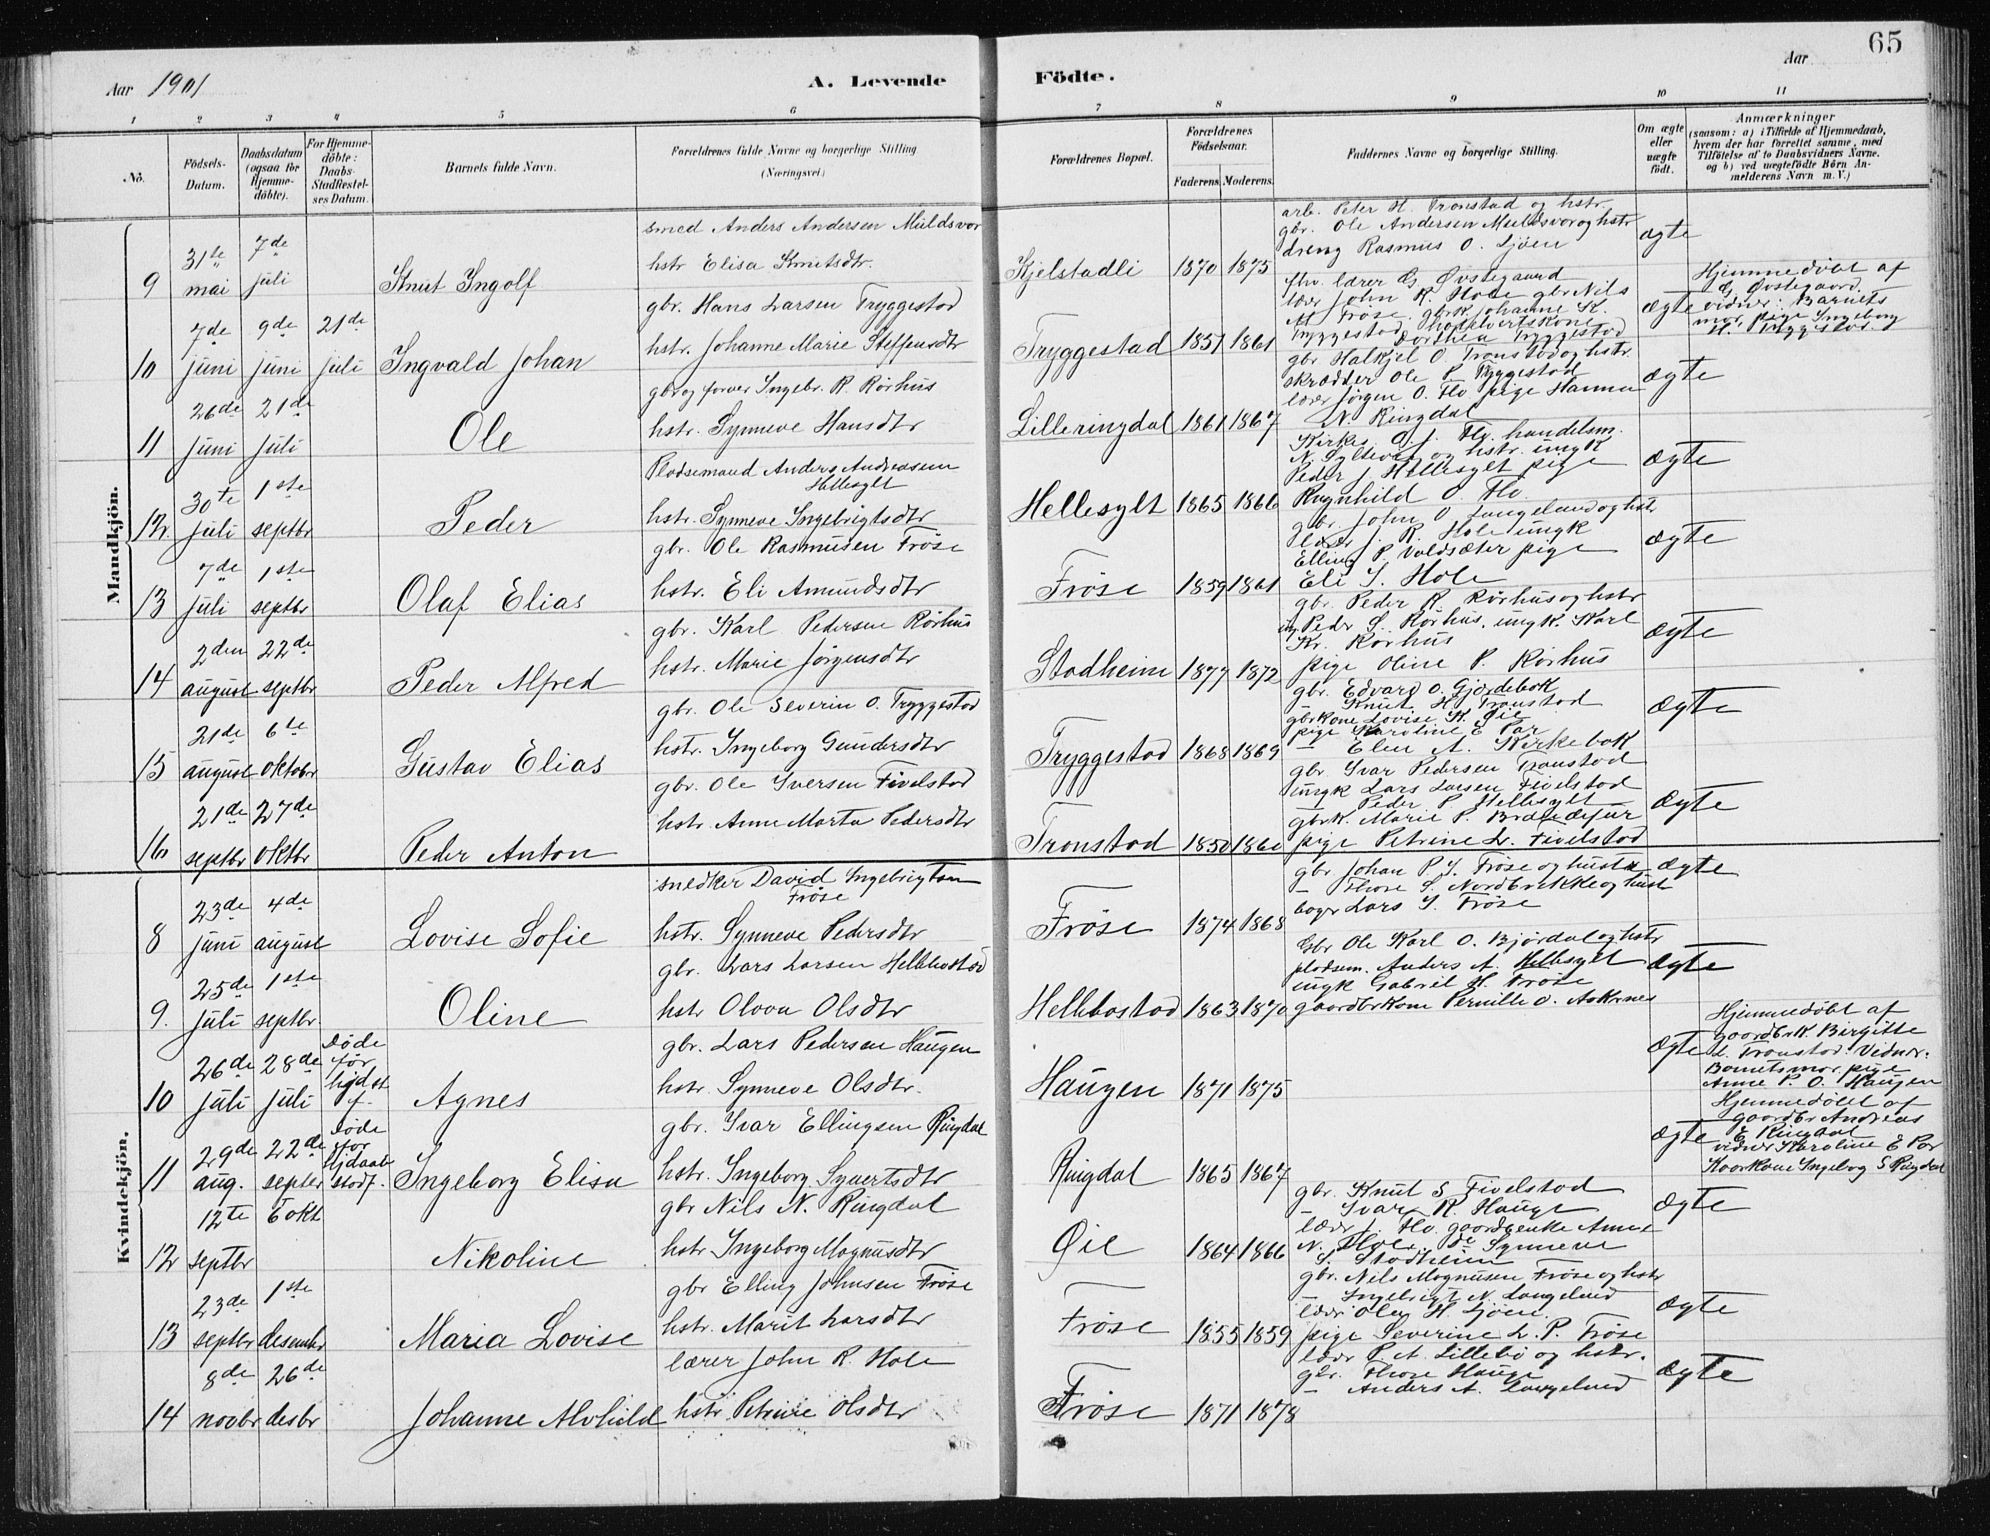 65
Aar 1901
A. Levende
Födte.
Aar
1 2 3 4 5 6 7 8 9 10 11
No.
Födsels-Datum.
Daabsdatum (ogsaa for Hjemme-döbte).
For Hjemme-döbte: Daabs-Stadfæstel-ses Datum.
Barnets fulde Navn.
Forældrenes fulde Navne og borgerlige Stilling. (Næringsvei.)
Forældrenes Bopæl.
Forældrenes Födselsaar.
Faderens.
Moderens.
Faddernes Navne og borgerlige Stilling.
Om ægte eller uægte födt.
Anmærkninger (saasom: a) i Tilfælde af Hjemmedaab, hvem der har forrettet samme, med Tilföielse af to Daabsvidners Navne. og b) ved uægtefödte Börn An-melderens Navn m. V.)
Mandkjön.
9
31te mai
7de juli
Knut Ingolf
smed Anders Andersen Muldsvor
hstr Elisa Knutsdtr.
Kjelstadli
1870 1875
arb. Peter H. Tronstad og hstr
gbr. Ole Andersen Muldsvor og hstr
dreng Rasmus O. Sjöen
ægte
10
7de juni
9de juni
21de juli
Ingvald Johan
gbr. Hans Larsen Tryggestad
hstr. Johanne Marie Steffensdtr
Tryggestad
1857 1861
fhv. lærer G. Øvstegaard
lærer John R. Hole gbr Nils
M Frøse. gbrk Johanne K.
Tryggestad
Dorthea Tryggestad
ægte
Hjemmedöbt af
G. Øvstegaard.
vidner: Barnets
mor, pige Ingeborg
H. Tryggestad
11
26de juni
21de juli
Ole
gbr og forver Ingebr. R. Rørhus
hstr. Synneve Hansdtr
Lilleringdal
1861 1867
gbr Halkjel O Tronstad og hstr
skrædder Ole P Tryggestad
lærer Jörgen O. Flo pige Hanna
N. Ringdal
ægte
12.
30te juli
1ste septbr
Peder
Pladsemand Anders Andreassen
Hellesylt
hstr. Synneve Ingebrigtsdtr
Hellesylt
1865 1866
Kirkes. O. J. Flo. handelsm.
N. Syltevig og hstr. ungk
Peder J Hellesylt pige
Ragnhild O. Flo.
ægte
13
7de juli
1ste septbr
Olaf Elias
gbr. Ole Rasmusen Frøse
hstr. Eli Amundsdtr
Frøse
1859 1861
gbr. John O Langeland og hstr
lærer J. R. Hole ungk
Elling P Valdsæter pige
Eli S. Hole
ægte
14
2den august
22de septbr
Peder Alfred
gbr. Karl Pedersen Rörhus
hstr. Marie Jörgensdtr
Stadheim
1877 1872
gbr. Peder R Rörhus og hstr
Peder S. Rörhus. ungk. Karl
Kr. Rörhus
pige Oline P. Rörhus
ægte
15
21de august
6te oktober
Gustav Elias
gbr. Ole Severin O. Tryggestad
hstr. Ingeborg Gundersdtr
Tryggestad
1868 1869
gbr. Edvard O. Gjærdebak
– Knut H Tronstad
gbrkone Lovise K. Øie
pige Karoline E Par
– Elen A. Kirkebak
ægte
16
21de septbr
27de oktbr
Peder Anton
gbr. Ole Iversen Fivelstad
hstr. Anne Marta Pedersdtr
Tronstad
1850 1860
gbr. Ivar Pedersen Tronstad
ungk Lars Larsen Fivelstad
– Peder P. Hellesylt
gbrk. Marie P. Bræædefur
pige Petrine L. Fivelstad
ægte
Kvindekjön.
8
23de juni
4de august
Lovise Sofie
snedker David Ingebrigtsen
Frøse
hstr. Synneve Pedersdtr
Frøse
1874 1868
gbr Johan P. S. Frøse og hustr
– Thore S. Nordbrekke og hustr
bager Lars S. Frøse
ægte
9.
25de juli
1ste septbr.
Oline
gbr. Lars Larsen Hellebostad
hstr Olova Olsdtr
Hellebostad
1863 1870
Gbr Ole Karl O. Bjørdal og hstr
pladsem. Anders A. Hellesylt
ungk Gabriel H. Frøse
gaardbrkone Pernille O. Aaknes
ægte
10
26de juli
28de juli
Døde
før
hjdst
f.
Agnes
gbr. Lars Pedersen Haugen
hstr. Synneve Olsdtr.
Haugen
1871 1875
ægte
Hjemmedöbt af
gaardbrk Birgitte
L. Tronstad. Vidner:
Barnets mor, pige
Anne P. O. Haugen
11
29de aug.
22de septbr
Døde
før
hjdaab
stadf.
Ingeborg Elisa
gbr. Ivar Ellingsen Ringdal
hstr. Ingeborg Syvertsdtr
Ringdal
1865 1867
ægte
Hjemmedöbt af
gaardbr Andreas
E Ringdal
vidner Karoline E Par
Kaarkone Ingeborg S Ringdal
12
12te septbr
6 okt
Nikoline
gbr Nils N. Ringdal
hstr Ingeborg Magnusdtr
Øie
1864 1866
gbr. Knut S Fivelstad
– Ivar R. Hauge
lærer J. Flo. gaardbenke Anne
N. Hole. de Synneve
S. Stadheim
ægte
13
23de septbr
1ste desembr
Maria Lovise
gbr Elling Johnsen Frøse
hstr. Marit Larsdtr
Frøse
1855 1859
gbr. Nils Magnusen Frøse og hstr
– Ingebrigt N. Langeland
lærer Olav H. Sjöen
pige Severine L. P. Frøse
ægte
14
8de novbr
26de desbr
Johanne Alvhild
lærer John R. Hole
hstr Petrine Olsdtr
Frøse
1871 1878
lærer P. A. Lillebø og hstr.
gbr. Thore Hauge
– Anders A. Langeland
ægte